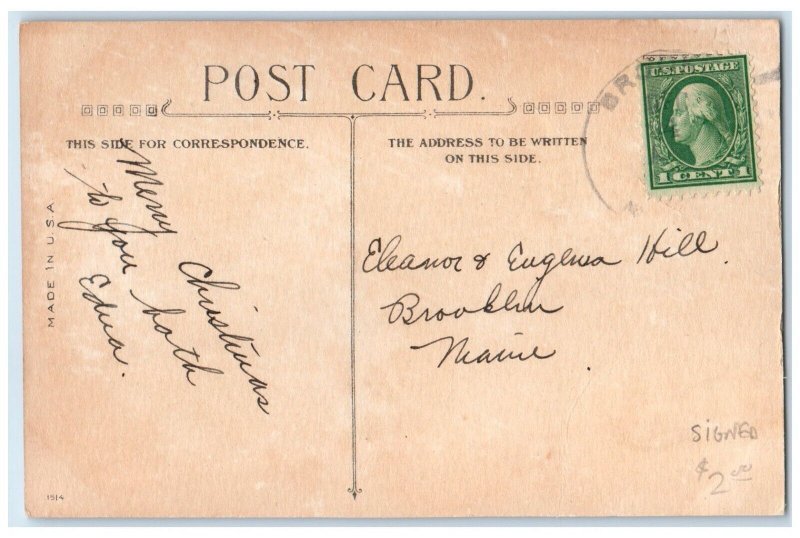 POST CARD.
THIS SIDE FOR CORRESPONDENCE.
THE ADDRESS TO BE WRITTEN
ON THIS SIDE.
BR
U.S. POSTAGE
1 CENT 1
MADE IN U.S.A.
Merry Christmas
to you both
Edna.
Eleanor & Eugenia Hill.
Brooklin
Maine
SIGNED
$2.00
1514